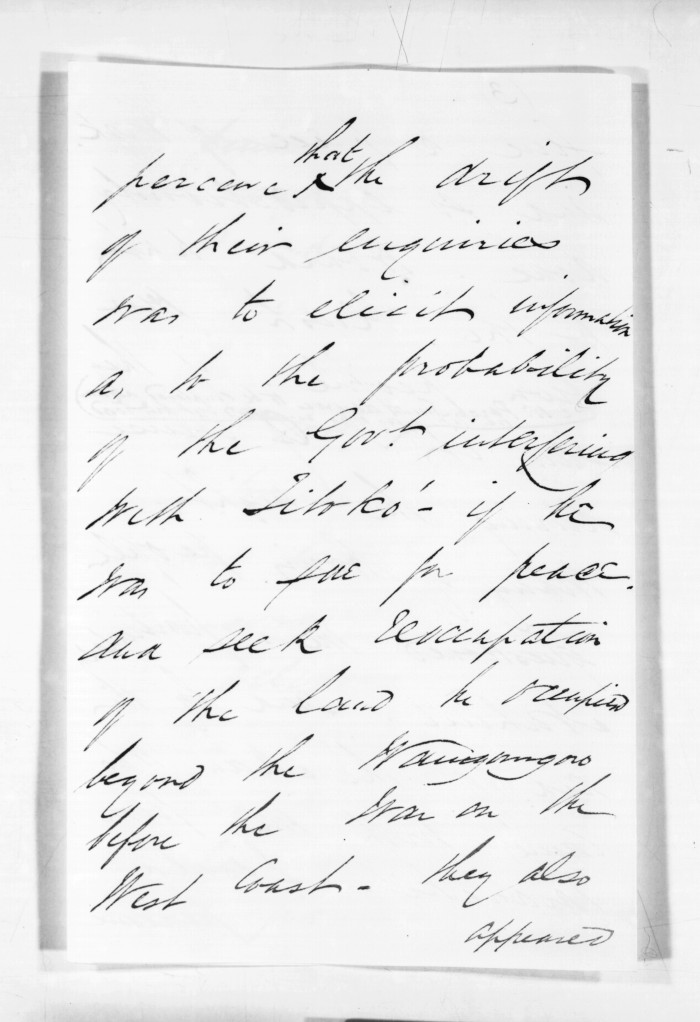 perceive that the drift
of their enquiries
was to elicit information
as to the probability
of the Govt. interfering
with Titoko - if he
was to sue for peace.
and seek reoccupation
of the land he occupied
beyond the Waingongoro
before the War on the
West Coast - they also
appeared